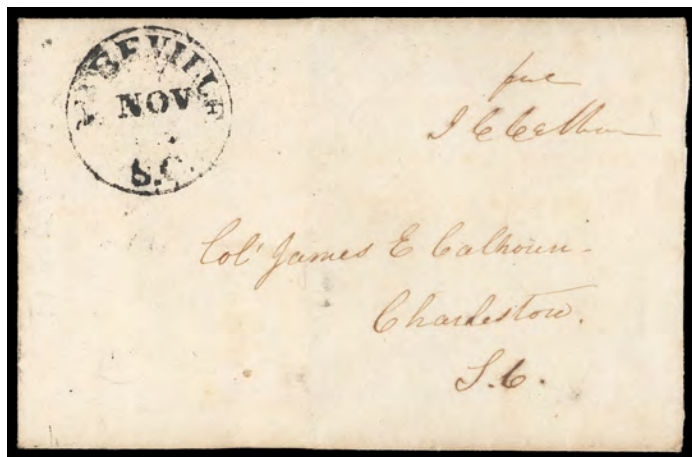 NOV
S.C.
free
J C Calhoun
Col' James E Calhoun-
Charleston.
S.C.